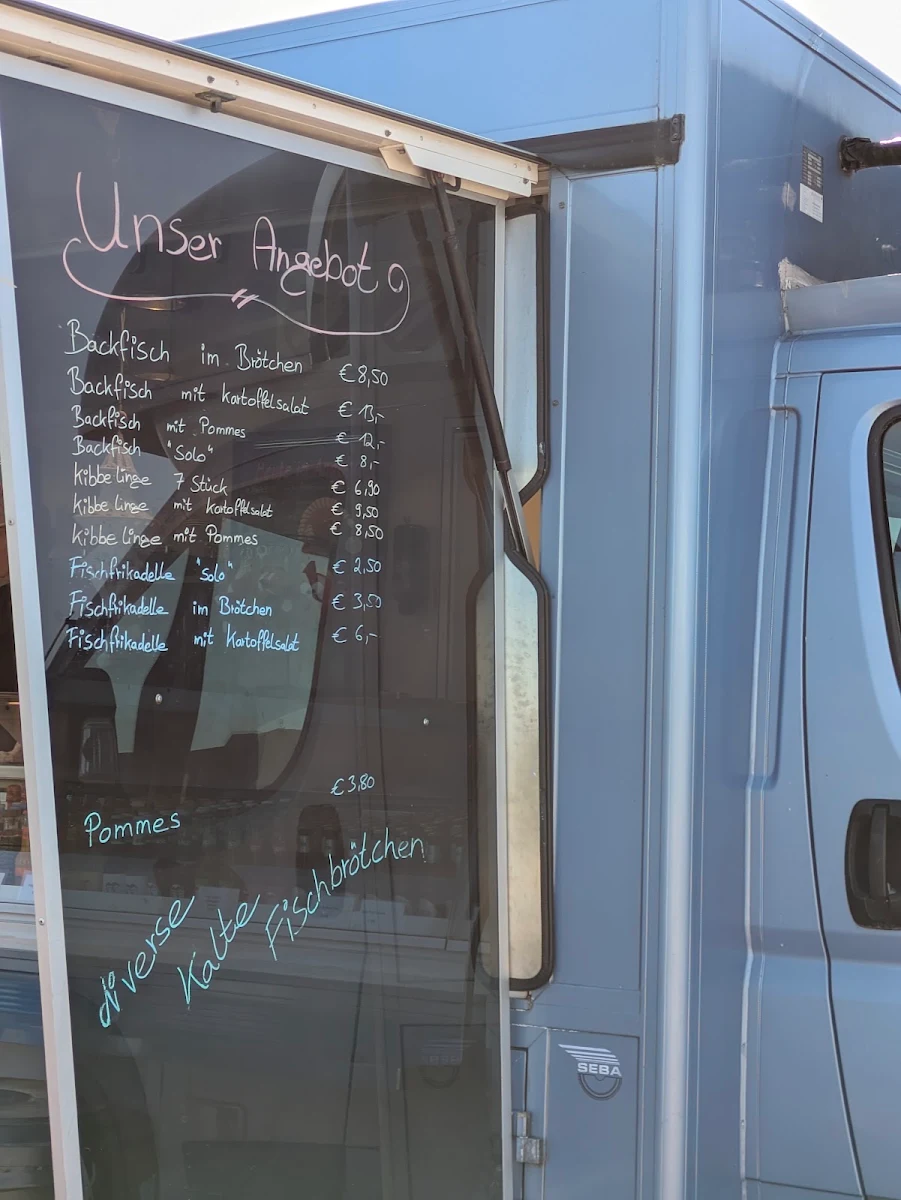 Unser Angebot
Backfisch im Brötchen € 8,50
Backfisch mit Kartoffelsalat € 13,-
Backfisch mit Pommes € 12,-
Backfisch "Solo" € 8,-
Kibbelinge 7 Stück € 6,90
Kibbelinge mit Kartoffelsalat € 9,50
Kibbelinge mit Pommes € 8,50
Fischfrikadelle "Solo" € 2,50
Fischfrikadelle im Brötchen € 3,50
Fischfrikadelle mit Kartoffelsalat € 6,-
Pommes € 3,80
diverse Kalte Fischbrötchen
SEBA